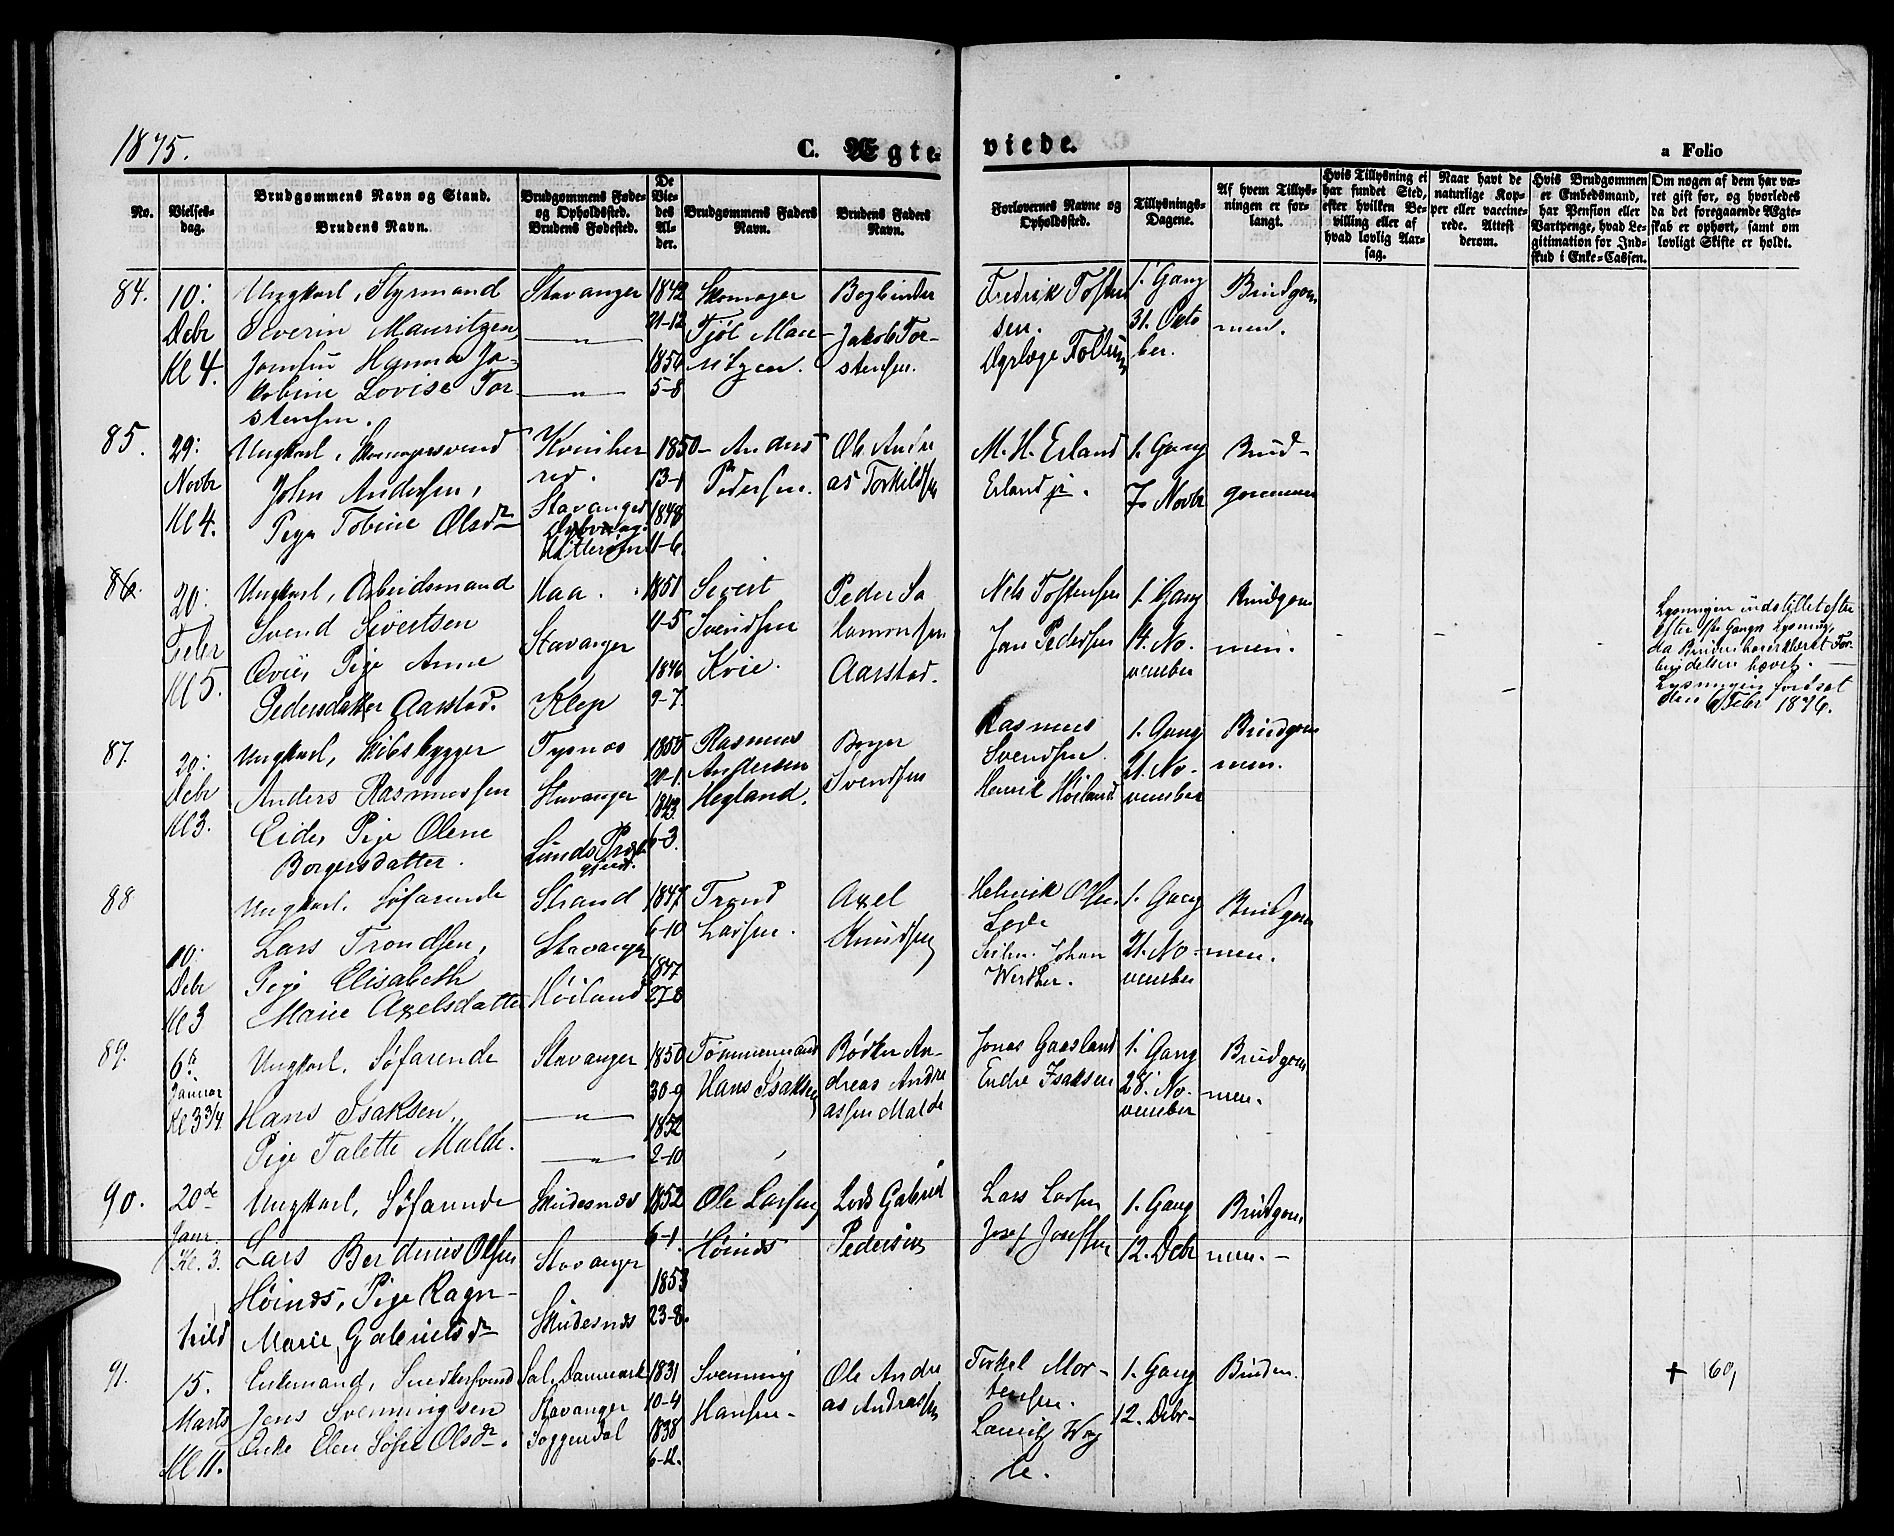 1875.
C. Ægte-
viede.
a Folio
No.
Vielses-
dag.
Brudgommens Navn og Stand.
Brudens Navn.
Brudgommens Føde-
og Opholdssted.
Brudens Fødested.
De
Vie-
des
Al-
der.
Brudgommens Faders
Navn.
Brudens Faders
Navn.
Forlovernes Navne og
Opholdssted.
Tillysnings-
Dagene.
Af hvem Tillys-
ningen er for-
langt.
Hvis Tillysning ei
har fundet Sted,
efter hvilken Be-
villing eller af
hvad lovlig Aar-
sag.
Naar havt de
naturlige Kop-
per eller vaccine-
rede. Attest
derom.
Hvis Brudgommen
er Embedsmand,
har Pension eller
Vartpenge, hvad Le-
gitimation for Ind-
skud i Enke-Cassen.
Om nogen af dem har væ-
ret gift før, og hvorledes
da det foregaaende Ægte-
skab er ophørt, samt om
lovligt Skifte er holdt.
84.
10:
Debr
Kl 4.
Ungkarl, Styrmand
Severin Mauritzen,
Jomfru Hanna Ja-
kobine Lovise Tor
stensen.
Stavanger
— " —
— " —
1842
21-12
1856
5-8
Skomager
Tjøl Mau-
ritzen.
Bogbinder
Jakob Tor-
stensen.
Fredrik Tosten
sen.
Dyrlæge
1. Gang
31. Octo
ber.
Brudgom
men.
85.
29:
Novbr
Kl 4.
Ungkarl, Skomagersvend
John Andersen,
Pige Tobine Olsdr
Kvinher
red.
Stavanger
1850
13-1
1848
11-6
Anders
Pedersen.
Ole Andre
as Torkildsen
M. H. Erland
Erland jr.
1. Gang
7. Novbr
Brud-
gommen
86.
20:
Febr
Kl 5.
Ungkarl, Arbeidsmand
Svend Sivertsen
Qvie, Pige Anne
Pedersdatter Aarstad.
Haa.
Stavanger
Klep
1851
11-5
1846
9-7
Sivert
Svendsen
Kvie.
Peder Sa
lamonsen
Aarstad.
Nels Tostensen
Jan Pedersen
1. Gang
14. No-
vember
Brudgom
men.
Lysningen indstillet efter
efter 1ste Gangs Lysning,
da Bruden har erklæret For-
bindelsen hævet. —
Lysningen fordsat
den 6 Febr 1876.
87.
20:
Debr
Kl 3.
Ungkarl, Skibsbygger
Anders Rasmussen
Eide, Pige Olene
Borgersdatter.
Tysnæs
Stavanger
Lunds Præste
gjeld.
1855
20-1
1843
6-3
Rasmus
Andersen
Hegland.
Borger
Svendsen
Rasmus
Svendsen
Henrik Høiland
1. Gang
21. No-
vember
Brudgom
men.
88
10:
Debr
Kl 3
Ungkarl. Søfarende
Lars Trondsen,
Pige Elisabeth
Marie Axelsdatter
Strand
Stavanger
Høiland
1847
6-10
1847
27-8
Trond
Larsen.
Axel
Knudsen
Helmik Olsen
Johan
Werther.
1. Gang
21. No-
vember
Brudgom
men.
89.
6te
Januar
Kl 3 3/4
Ungkarl. Søfarende
Hans Isaksen,
Pige Talette Malde.
Stavanger
— " —
— " —
1850
30-9
1852
2-10
Tømmermand
Hans Isaksen
Bødker An-
dreas Andre
assen Malde
Jonas Gaasland
Endre Isaksen
1. Gang
28. No-
vember
Brudgom
men.
90.
20de
Janr.
Kl. 3.
Ungkarl. Søfarende
Lars Berdinus Olsen
Høinæs, Pige Ragn-
hild Marie Gabrielsdr
Skudesnæs
Stavanger
Skudesnæs
1852
6-1.
1853
23-8.
Ole Larsen
Høinæs
Lods Gabriel
Pedersen
Lars Larsen
Josef Joseffsen
1. Gang
12. Debr
Brudgom
men. —
91.
15.
Marts
Kl 11.
Enkemand, Snedkersvend
Jens Svenningsen
Enke Elen Sofie Olsdr.
Sal, Danmark
Stavanger
Soggendal
1831
10-4
1838
6-12.
Svenning
Hansen.
Ole Andre
as Andreassen
Torkel Mor-
tensen.
1. Gang
12. Debr.
Bruden.
+ 169,